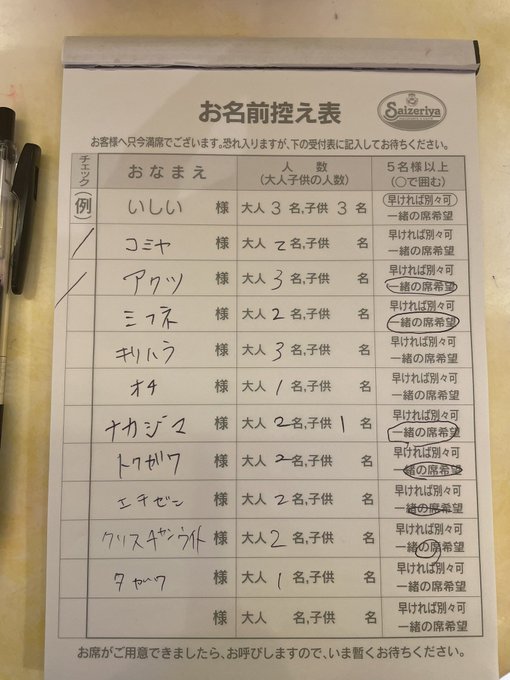 お名前控え表
Saizeriya
お客様へ只今満席でございます。恐れ入りますが、下の受付表に記入してお待ちください。
チェック おなまえ 人数 (大人子供の人数) 5名様以上 (○で囲む)
(例) いしい 様 大人 3 名,子供 3 名 早ければ別々可 一緒の席希望
コミヤ 様 大人 2 名,子供 名 早ければ別々可 一緒の席希望
アクツ 様 大人 3 名,子供 名 早ければ別々可 一緒の席希望
ミフネ 様 大人 2 名,子供 名 早ければ別々可 一緒の席希望
キリハラ 様 大人 3 名,子供 名 早ければ別々可 一緒の席希望
オチ 様 大人 1 名,子供 名 早ければ別々可 一緒の席希望
ナカジマ 様 大人 2 名,子供 1 名 早ければ別々可 一緒の席希望
トクガワ 様 大人 2 名,子供 名 早ければ別々可 一緒の席希望
エチゼン 様 大人 2 名,子供 名 早ければ別々可 一緒の席希望
様 大人 2 名,子供 名 早ければ別々可 一緒の席希望
タガワ 様 大人 1 名,子供 名 早ければ別々可 一緒の席希望
様 大人 名,子供 名 早ければ別々可 一緒の席希望
お席がご用意できましたら、お呼びしますので、いま暫くお待ちください。